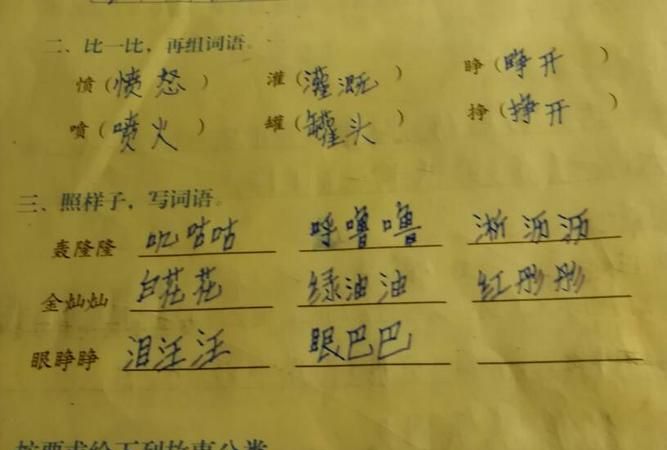 二、比一比，再组词语。
愤（愤怒） 灌（灌溉） 睁（睁开）
喷（喷火） 罐（罐头） 挣（挣开）
三、照样子，写词语。
轰隆隆 叽咕咕 呼噜噜 淅沥沥
金灿灿 白花花 绿油油 红彤彤
眼睁睁 泪汪汪 眼巴巴
按要求给下列故事分类